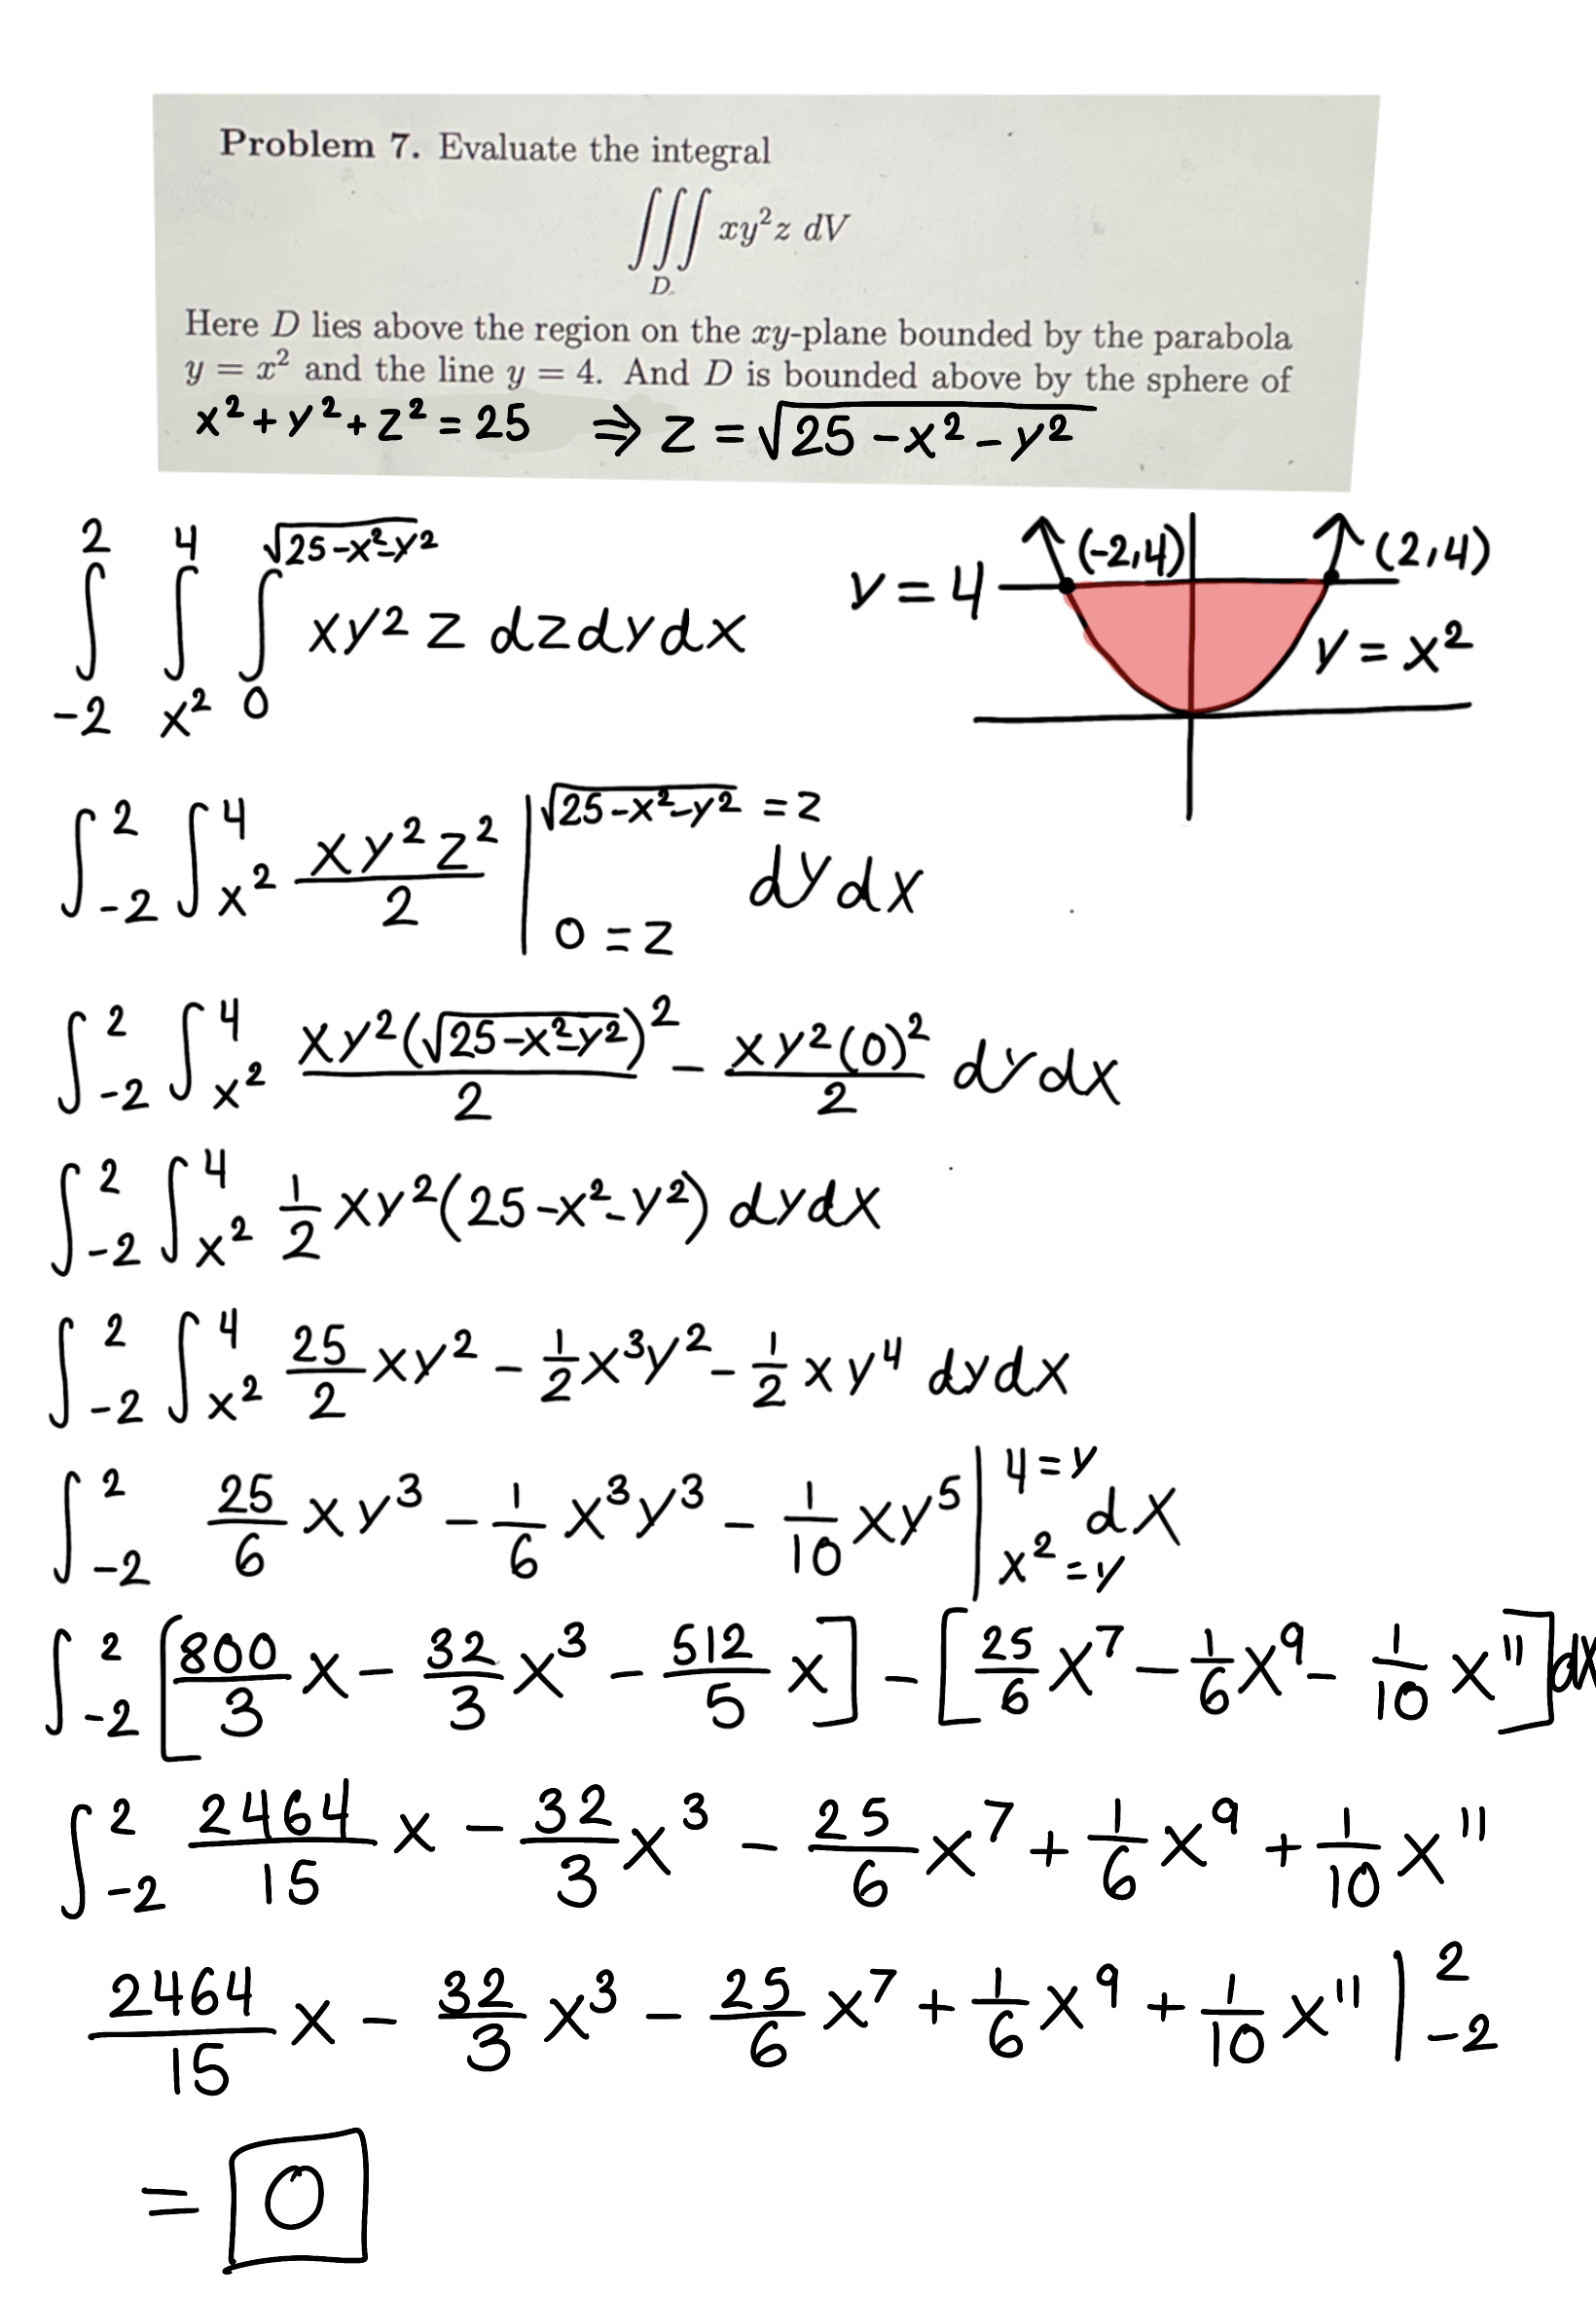 Problem 7. Evaluate the integral
∭_D xy²z dV
Here D lies above the region on the xy-plane bounded by the parabola
y = x² and the line y = 4. And D is bounded above by the sphere of
x² + y² + z² = 25 ⇒ z = √(25 - x² - y²)
∫_{-2}^{2} ∫_{x²}^{4} ∫_{0}^{√(25-x²-y²)} xy² z dzdydx
(-2,4) (2,4)
y = 4
y = x²
∫_{-2}^{2} ∫_{x²}^{4} xy²z²/2 |_{0=z}^{√(25-x²-y²) = z} dydx
∫_{-2}^{2} ∫_{x²}^{4} xy²(√(25-x²-y²))²/2 - xy²(0)²/2 dydx
∫_{-2}^{2} ∫_{x²}^{4} 1/2 xy²(25-x²-y²) dydx
∫_{-2}^{2} ∫_{x²}^{4} 25/2 xy² - 1/2 x³y² - 1/2 xy⁴ dydx
∫_{-2}^{2} 25/6 xy³ - 1/6 x³y³ - 1/10 xy⁵ |_{x²=y}^{4=y} dx
∫_{-2}^{2} [800/3 x - 32/3 x³ - 512/5 x] - [25/6 x⁷ - 1/6 x⁹ - 1/10 x¹¹] dx
∫_{-2}^{2} 2464/15 x - 32/3 x³ - 25/6 x⁷ + 1/6 x⁹ + 1/10 x¹¹
2464/15 x - 32/3 x³ - 25/6 x⁷ + 1/6 x⁹ + 1/10 x¹¹ |_{-2}^{2}
= 0